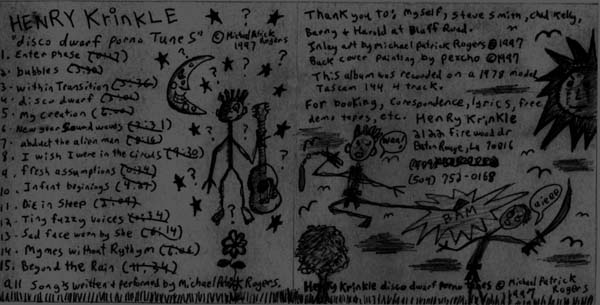 HENRY Krinkle
"disco dwarf porno Tunes"
© Michael Patrick Rogers
1997
1. Enter phase
2. bubbles
3. within Transition
4. disco dwarf
5. my creation
6. New year Sound woods
7. abduct the alien men
8. I wish I were in the circus (4:30)
9. fresh assumptions
10. Infent beginings
11. Die in Sleep
12. Tiny fuzzy voices
13. Sad face worn by she
14. Mymes without Rythym
15. Beyond the Rain
all song's written & performed by Michael Patrick Rogers.
Thank you to: myself, Steve Smith, chad Kelly,
Barny & Harold at Bluff Road.
Inlay art by michael Patrick Rogers © 1997
Back cover painting by psycho © 1997
This album was recorded on a 1978 model
Tascam 144 4 track.
For booking, Corespondence, lyrics, free
demo tapes, etc. HENRY Krinkle
Firewood dr
Baton Rouge, La 70816
(504) 752-0168
BAM
aieee
Henry Krinkle disco dwarf porno tunes © Michael Patrick Rogers
1997